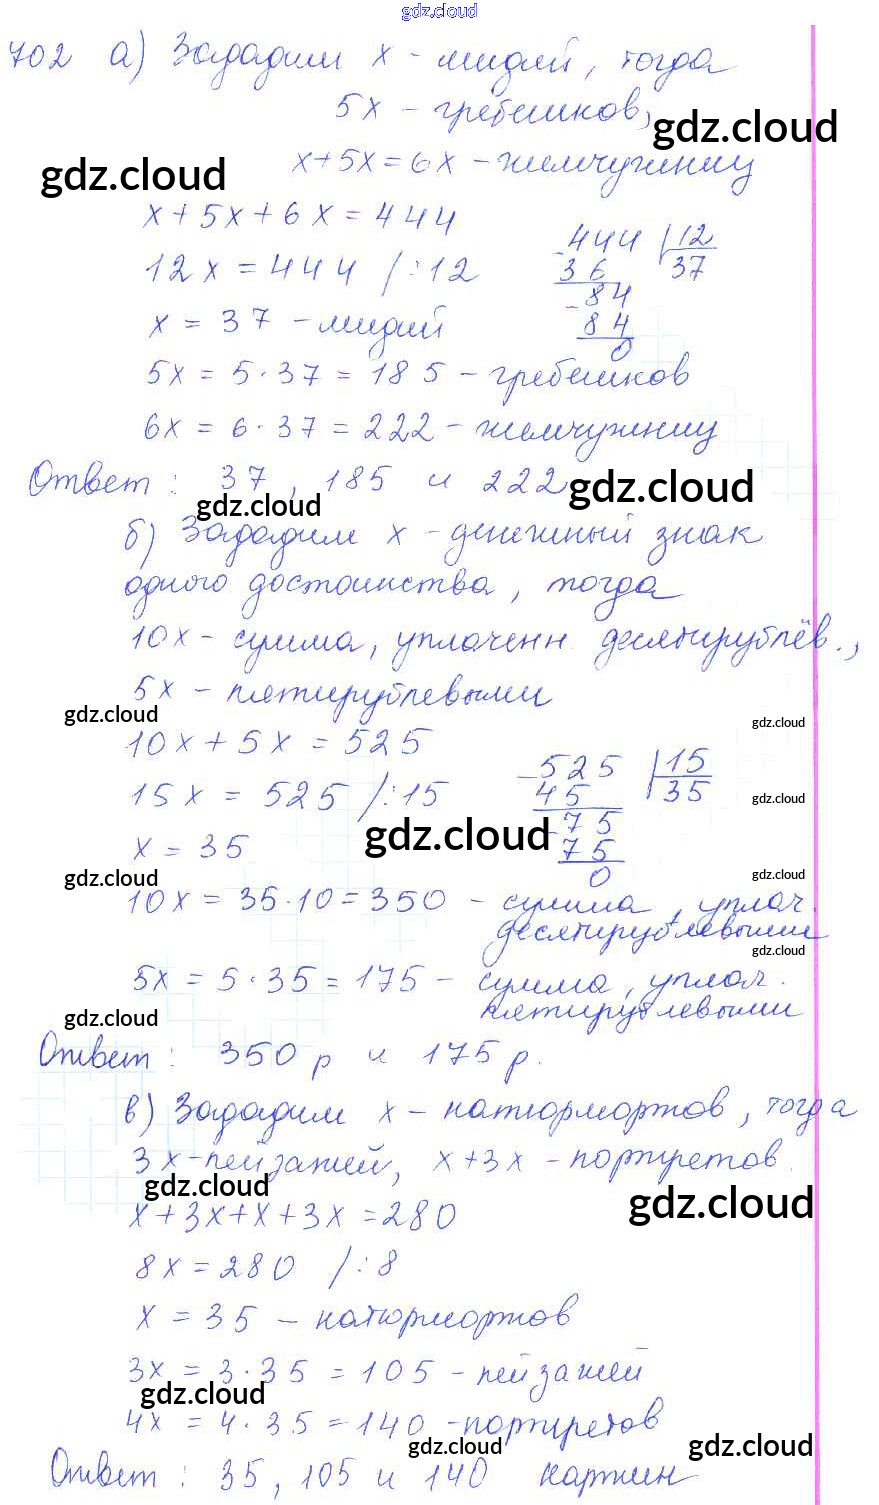 gdz.cloud
702 а) Зададим x - мидий, тогда
5x - гребешков,
gdz.cloud
gdz.cloud
x+5x=6x - жемчужниц
x+5x+6x=444
12x=444 /:12
- 444 | 12
36 37
- 84
84
0
x = 37 - мидий
5x = 5·37 = 185 - гребешков
6x = 6·37 = 222 - жемчужниц
Ответ: 37, 185 и 222
gdz.cloud
gdz.cloud
б) Зададим x - денежный знак
одного достоинства, тогда
10x - сумма, уплаченн. десятирублёв.,
5x - пятирублевыми
gdz.cloud
gdz.cloud
10x + 5x = 525
15x = 525 /:15
- 525 | 15
45 35
- 75
75
0
gdz.cloud
gdz.cloud
x = 35
gdz.cloud
gdz.cloud
10x = 35·10 = 350 - сумма, уплач.
десятирублевыми
gdz.cloud
5x = 5·35 = 175 - сумма, уплач.
пятирублевыми
gdz.cloud
Ответ: 350 р и 175 р.
в) Зададим x - натюрмортов, тогда
3x - пейзажей, x+3x - портретов.
gdz.cloud
gdz.cloud
x+3x+x+3x = 280
8x = 280 /:8
x = 35 - натюрмортов
3x = 3·35 = 105 - пейзажей
gdz.cloud
4x = 4·35 = 140 - портретов
gdz.cloud
gdz.cloud
Ответ: 35, 105 и 140 картин